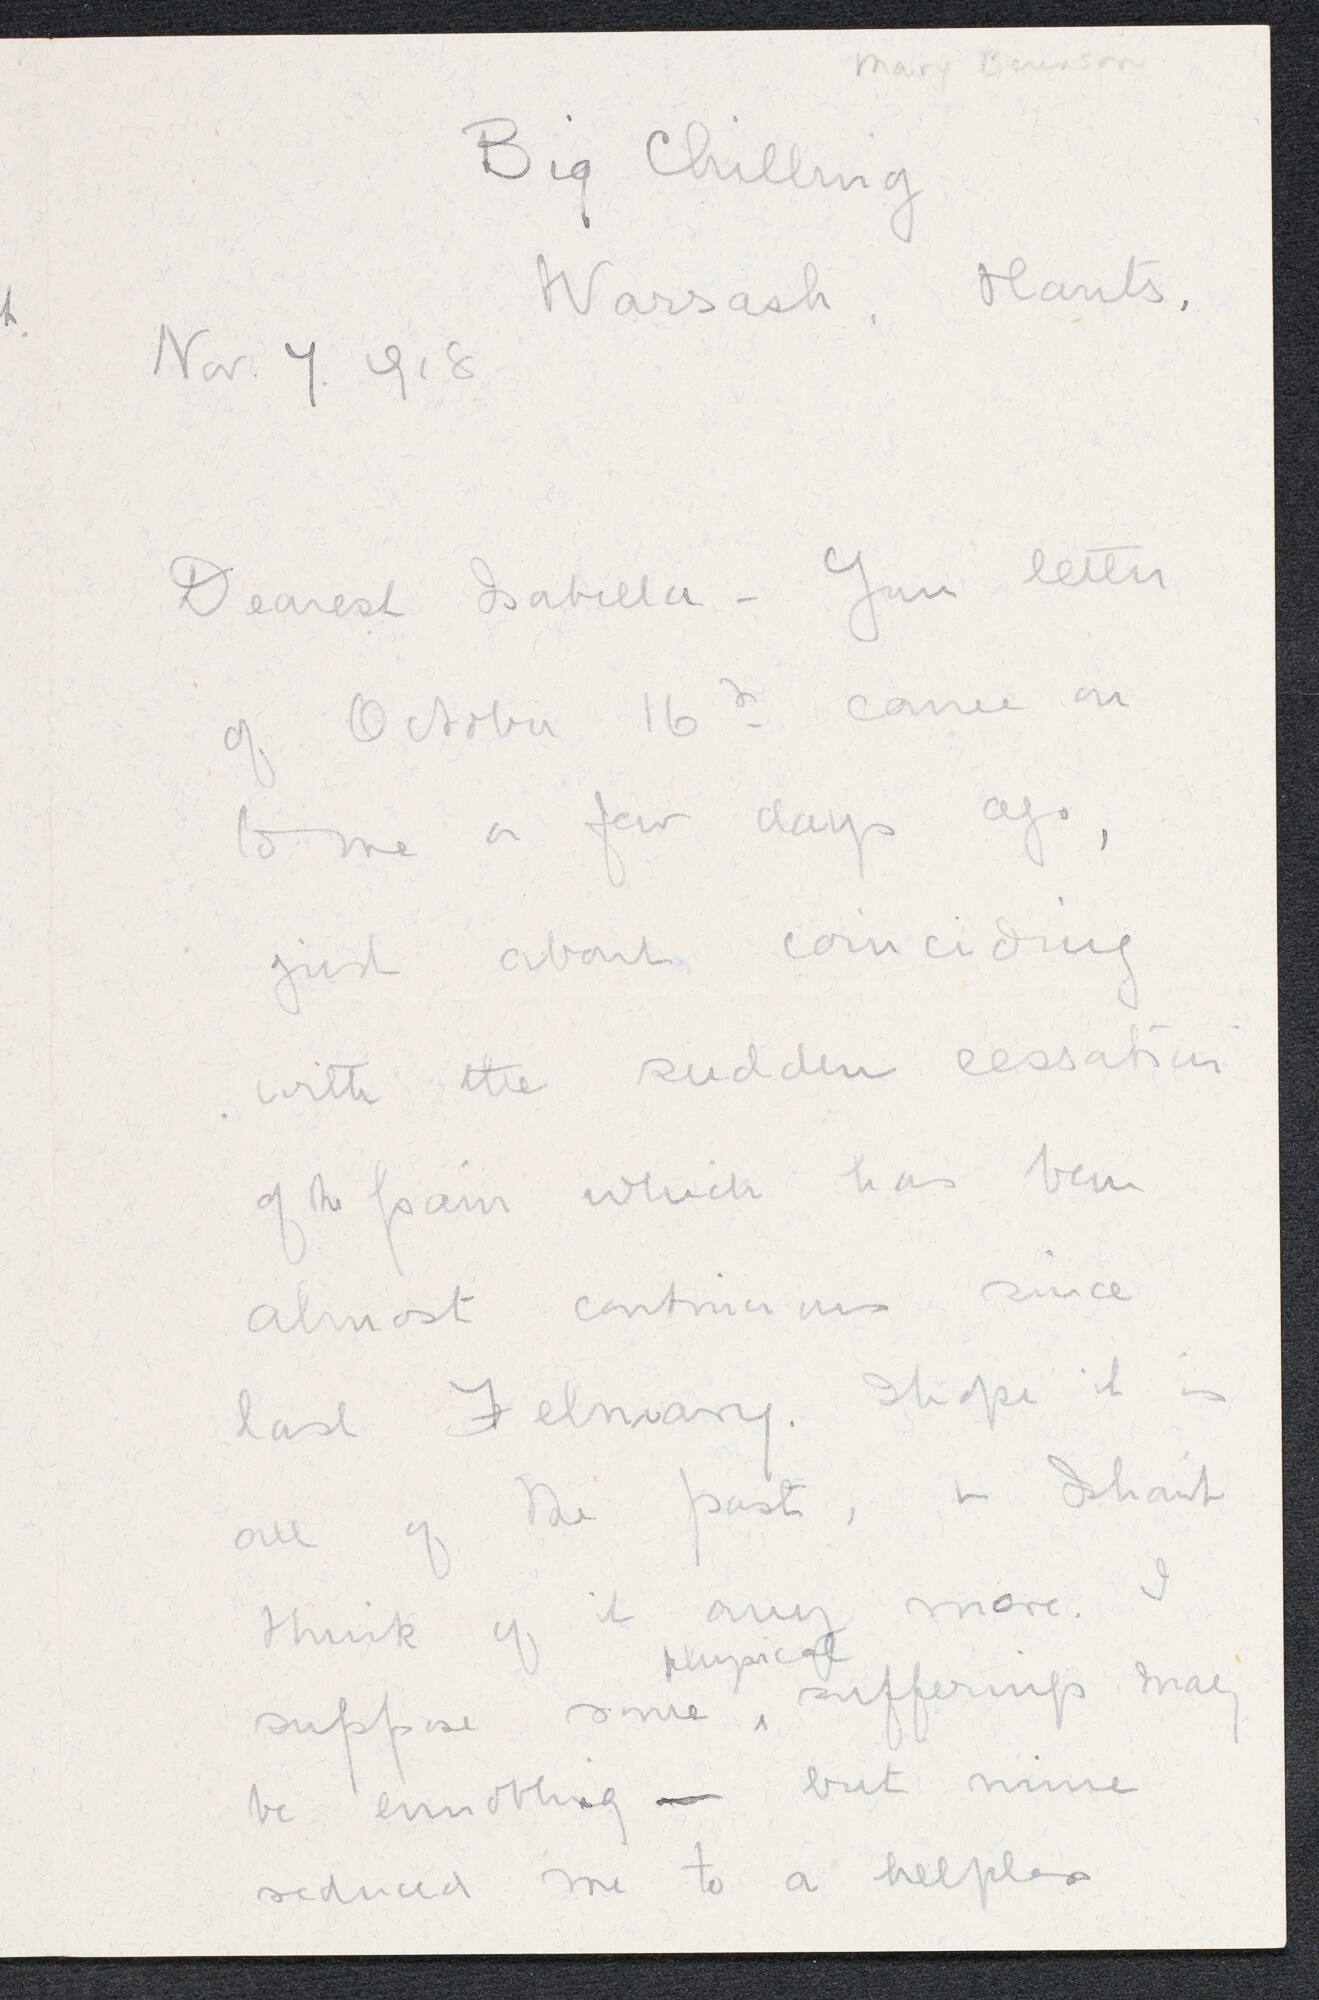 Mary Berenson
Big Chilling
Warsash, Hants.
Nov. 7. 1918
Dearest Isabella - Your letter
of October 16th came on
to me a few days ago,
just about coinciding
with the sudden cessation
of the pain which has been
almost continuous since
last February. I hope it is
all of the past, & I shan't
think of it any more. I
physical
suppose some ^ sufferings may
be ennobling — but mine
reduced me to a helpless